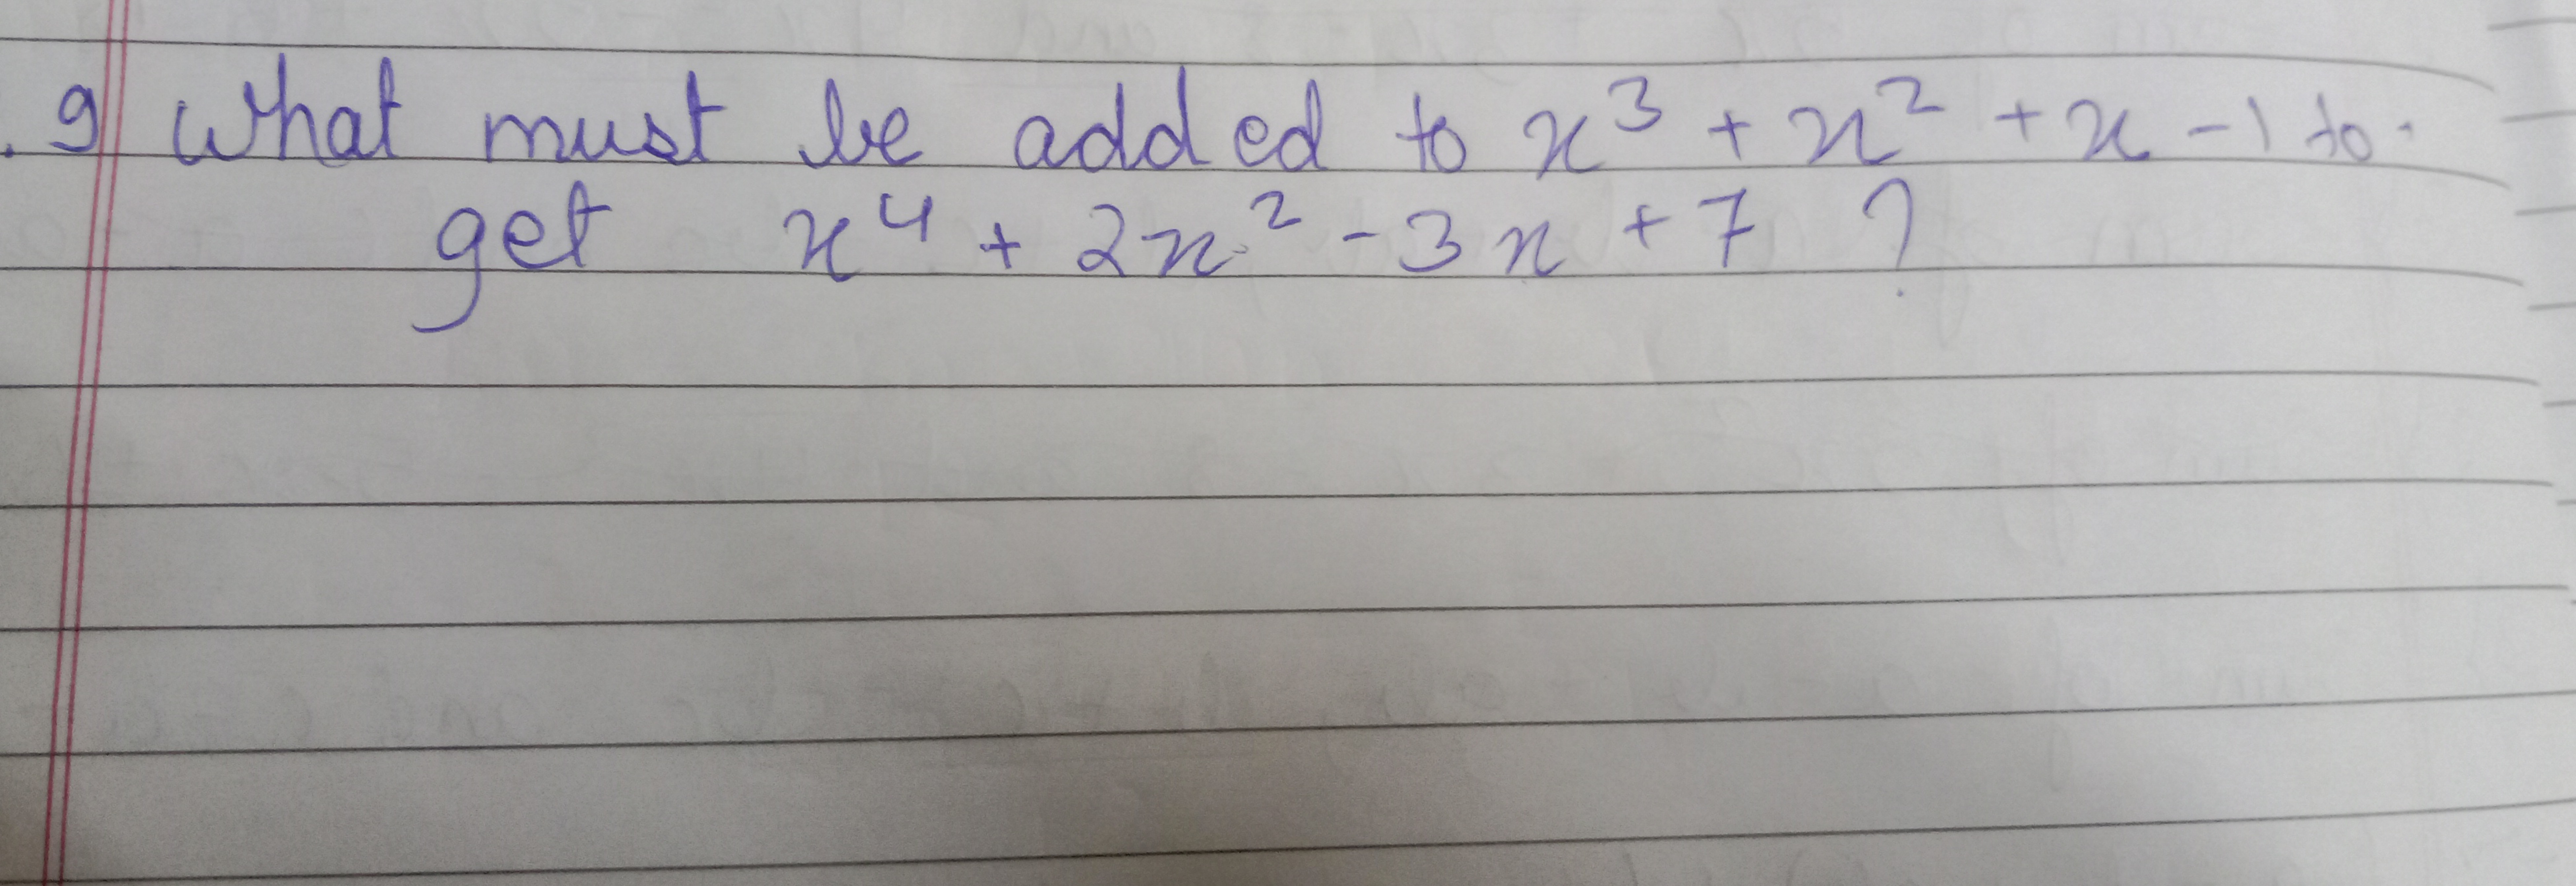 .9 What must be added to x³ + x² + x - 1 to.
get x⁴ + 2x² - 3x + 7 ?